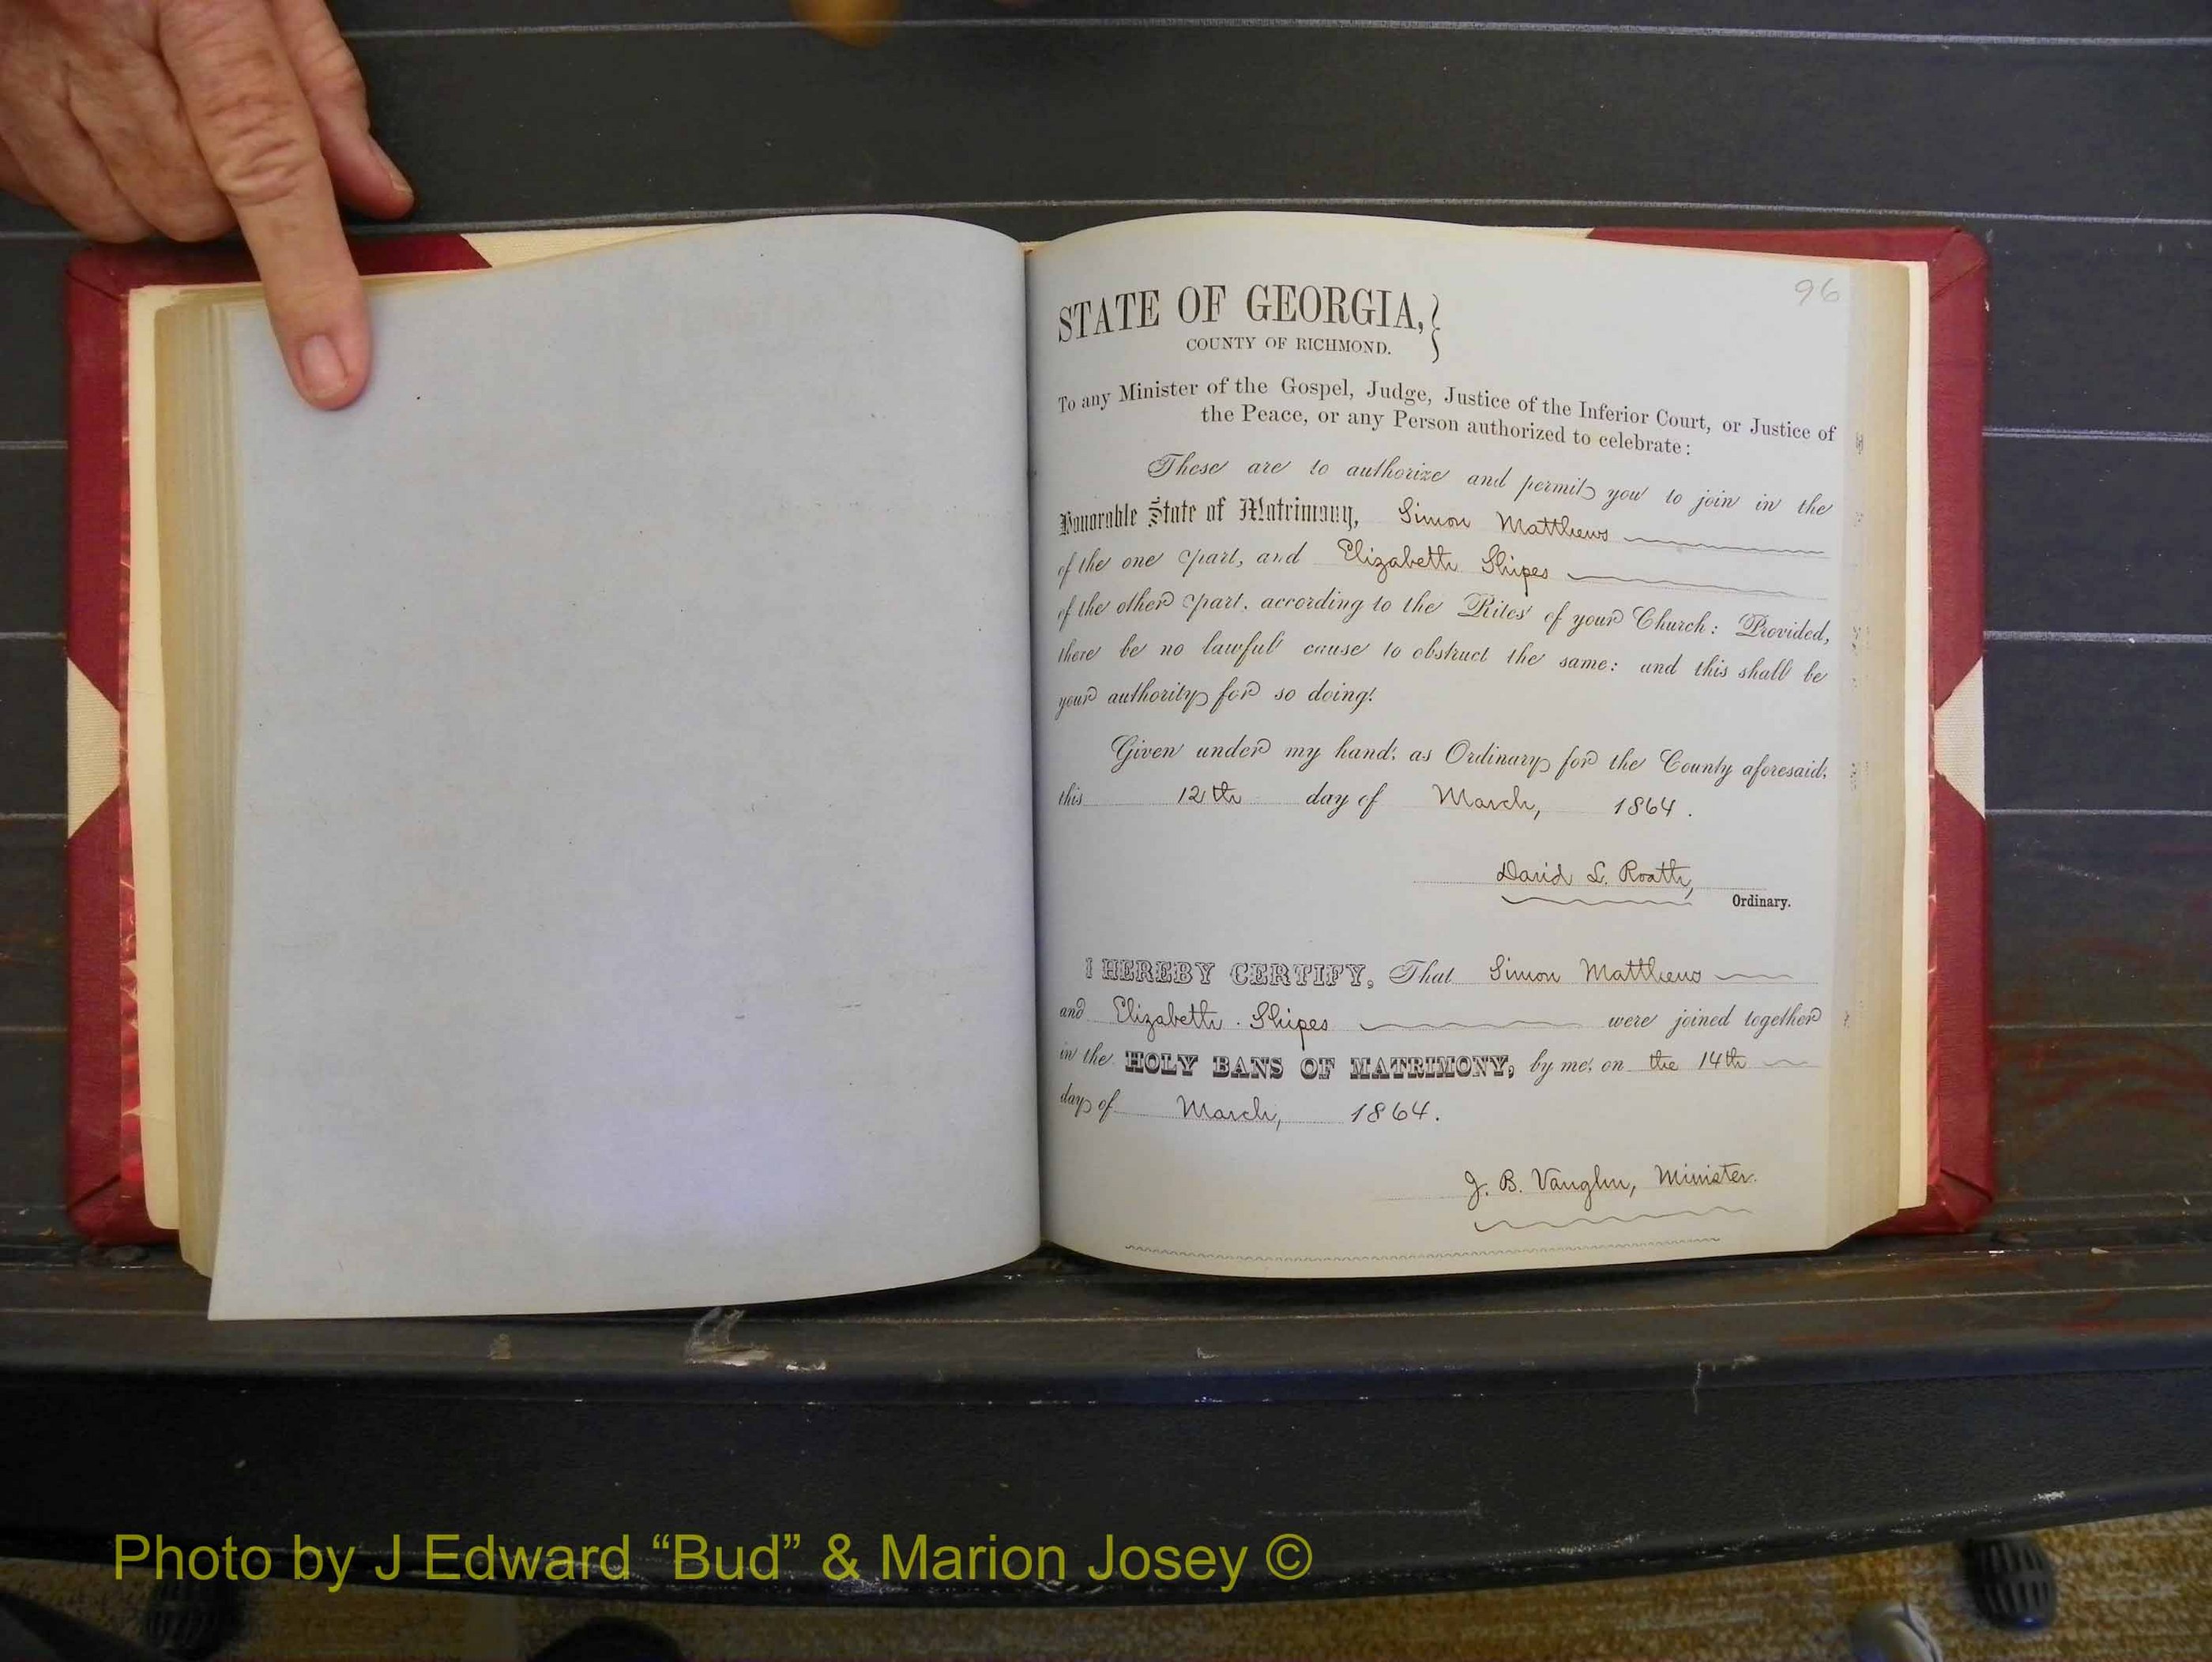 96
STATE OF GEORGIA,
COUNTY OF RICHMOND.
To any Minister of the Gospel, Judge, Justice of the Inferior Court, or Justice of
the Peace, or any Person authorized to celebrate:
These are to authorize and permit you to join in the
Honorable State of Matrimony, Simon Matthews
of the one part, and Elizabeth Shipes
of the other part, according to the Rites of your Church: Provided,
there be no lawful cause to obstruct the same: and this shall be
your authority for so doing.
Given under my hand, as Ordinary for the County aforesaid,
this 12th day of March, 1864.
David L. Roath,
Ordinary.
I HEREBY CERTIFY, That Simon Matthews
and Elizabeth Shipes were joined together
in the HOLY BANS OF MATRIMONY, by me, on the 14th
day of March, 1864.
J. B. Vaughn, Minister.
Photo by J Edward “Bud” & Marion Josey ©